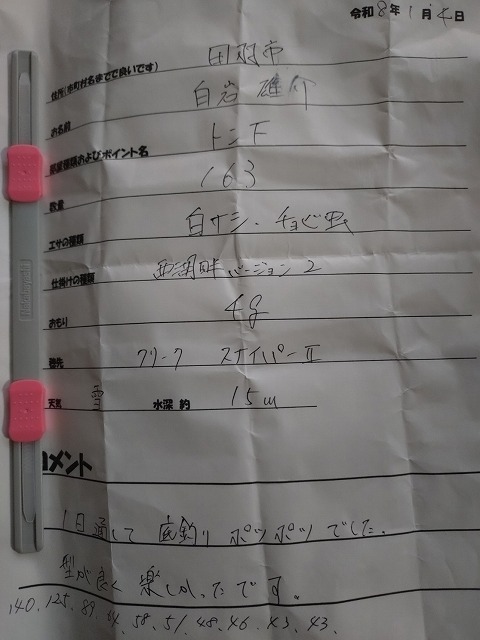 令和8年1月4日
住所(市町村名まででで良いです) 羽市
お名前 白岩 雄介
部屋種類およびポイント名 トンド
数量 163
エサの種類 白サシ・チョビ虫
仕掛けの種類 西湖畔バージョン2
おもり 4g
穂先 クリーク スナイパーⅡ
天気 雪 水深 約 15m
コメント
1日通して 底釣り ポツポツでした。
型が良く 楽しかったです。
140、125、89、64、58、51、48、46、43、43、